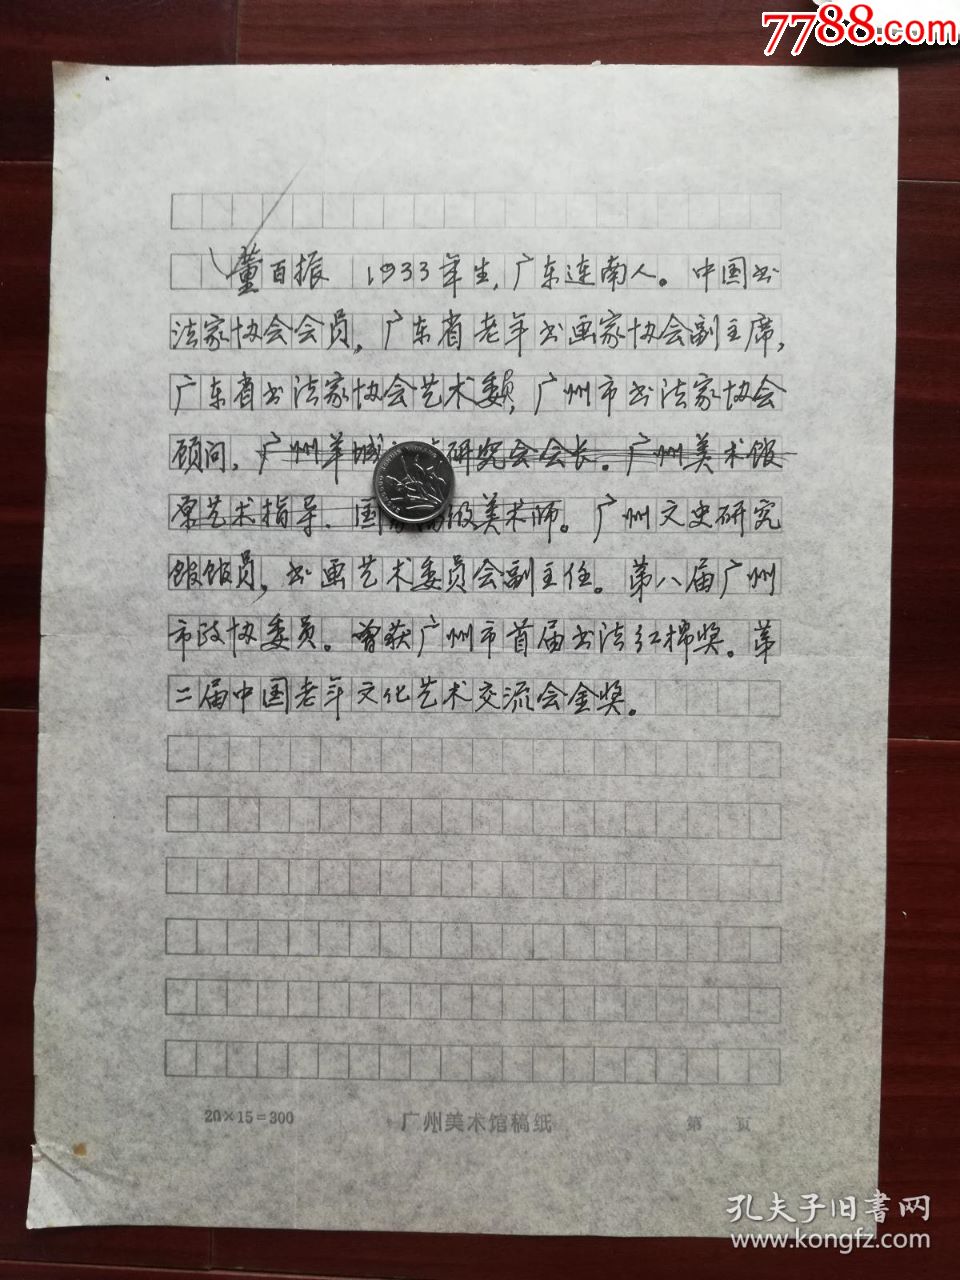 7788.com
董百振 1933年生,广东连南人。中国书
法家协会会员,广东省老年书画家协会副主席,
广东省书法家协会艺术委员,广州市书法家协会
顾问,广州羊城研究会会长。广州美术馆
原艺术指导、国级美术师。广州文史研究
馆馆员,书画艺术委员会副主任。第八届广州
市政协委员。曾获广州市首届书法红棉奖。第
二届中国老年文化艺术交流会金奖。
20×15=300 广州美术馆稿纸 第 页
孔夫子旧書网
www.kongfz.com